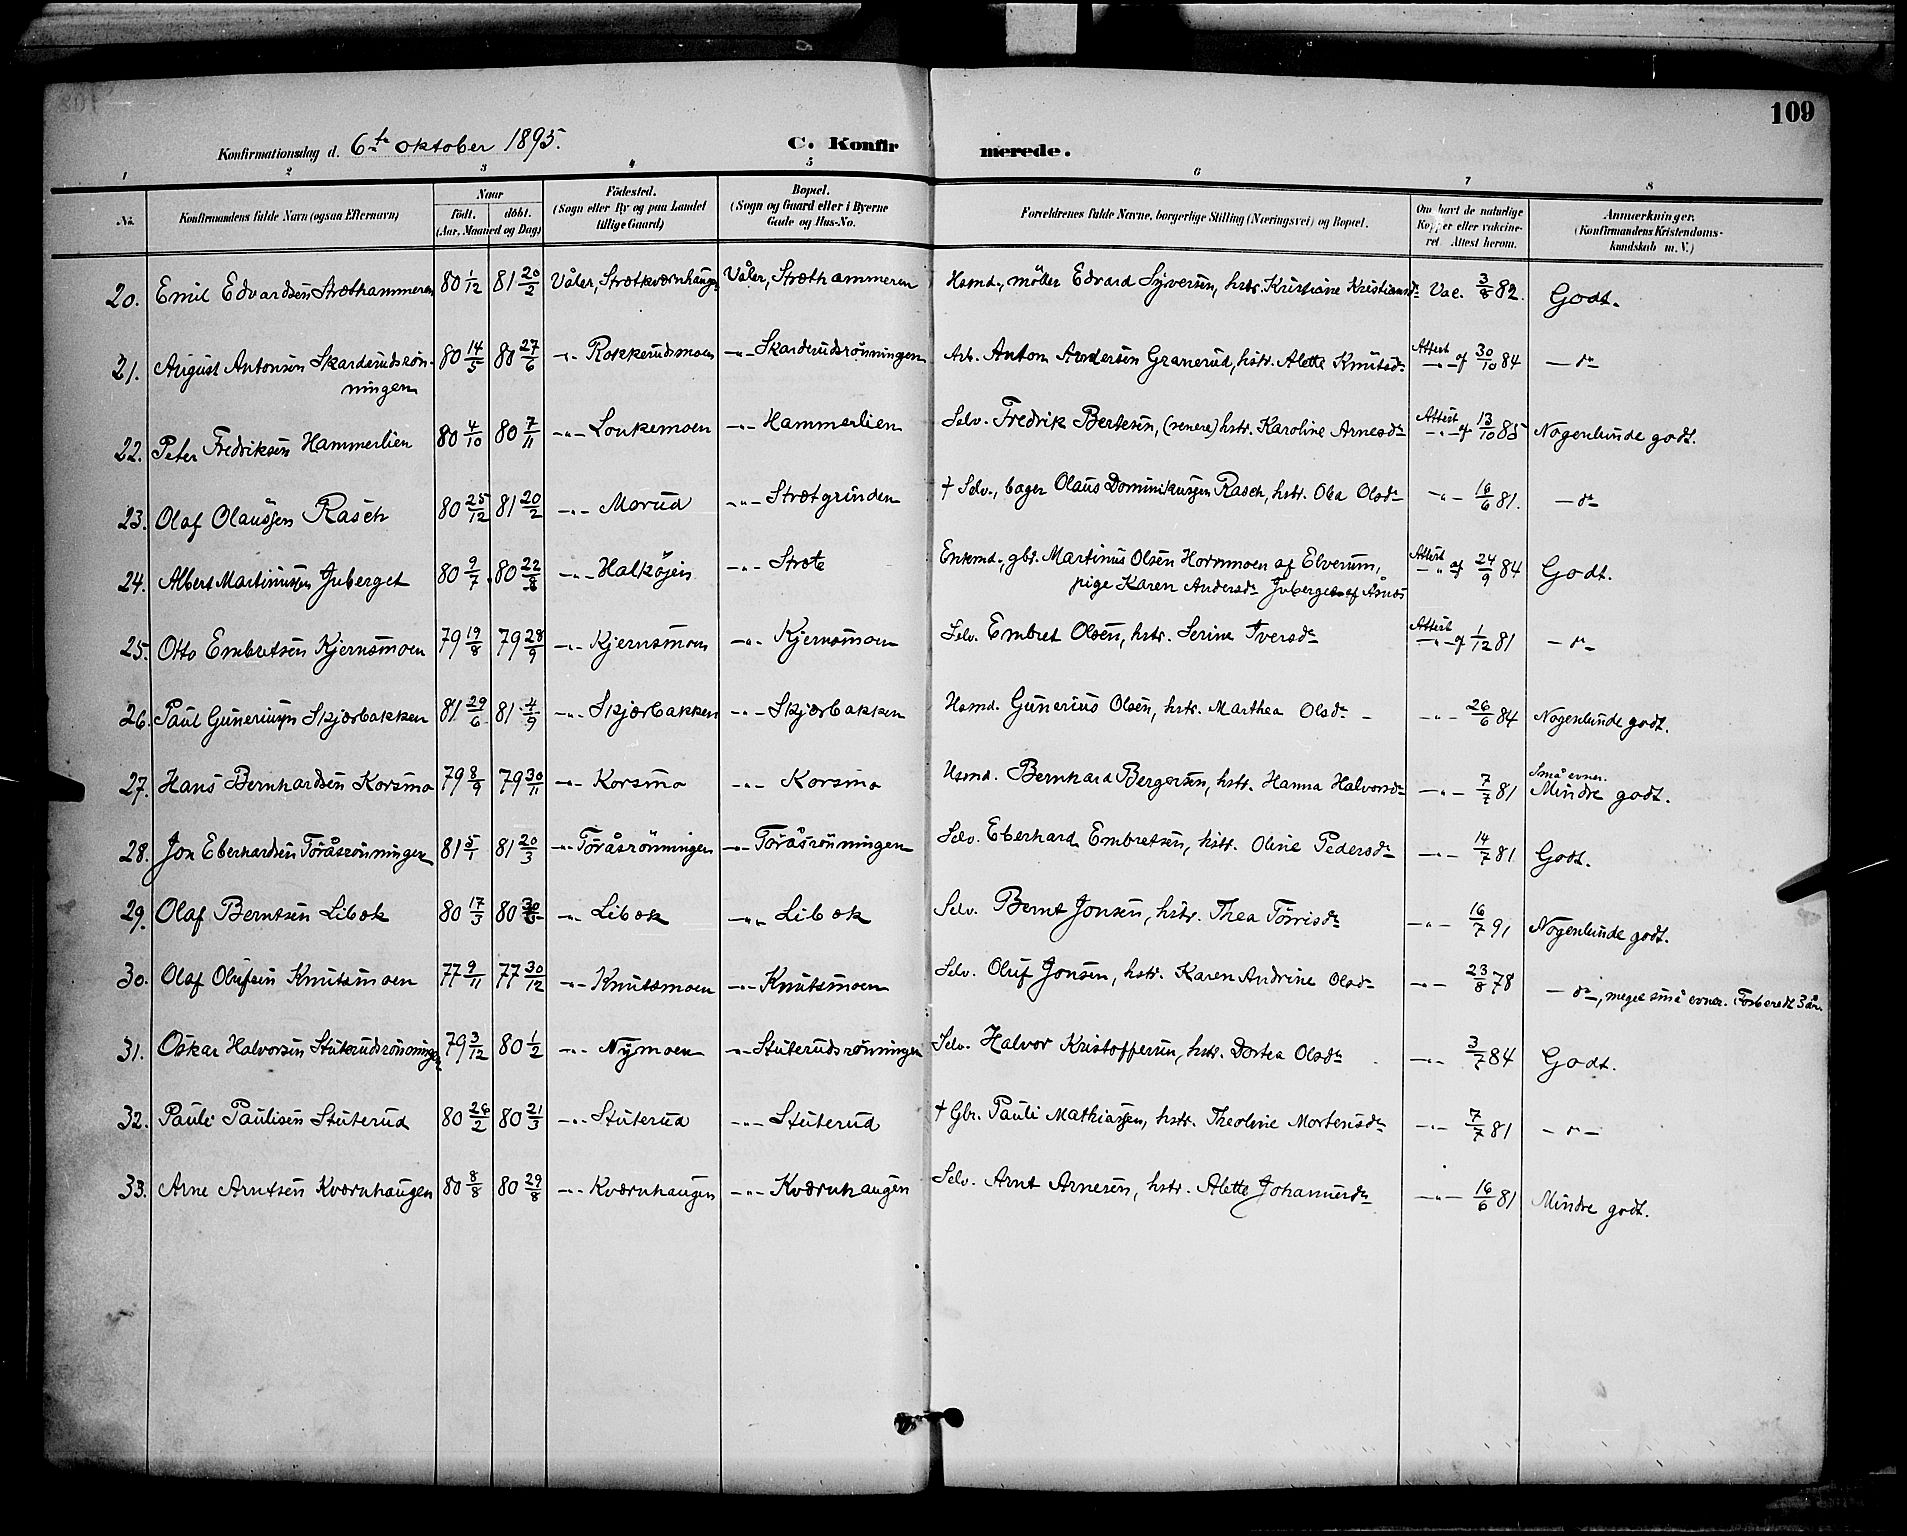 109
Konfirmationsdag d. 6te oktober 1895. C. Konfirmerede.
1 2 3 4 5 6 7 8
No. Konfirmandens fulde Navn (ogsaa Efternavn) Naar födt. döbt. (Aar, Maaned og Dag) Födested. (Sogn eller By og paa Landet tillige Gaard) Bopæl. (Sogn og Gaard eller i Byerne Gade og Hus-No. Forældrenes fulde Navne, borgerlige Stilling (Næringsvei) og Bopæl. Om havt de naturlige Kopper eller vakcineret. Attest herom. Anmærkninger. (Konfirmandens Kristendomskundskab m. V.)
20. Emil Edvardsen Stræthammeren 80 1/12 81 20/2 Våler, Strætkværnhaugen Våler, Stræthammeren Husmd., möller Edvard Syversen, hstr. Kristiane Kristiansdr Vac. 3/8 82. Godt.
21. August Antonsen Skarderudsrön- 80 14/5 80 27/6 -"- Rokkerudsmoen -"- Skarderudsrönningen Arb. Anton Andersen Granerud, hstr. Alette Knutsdr Attest -"- af 30/10 84 - dr -
ningen
22. Peter Fredriksen Hammerlien 80 4/10 80 7/11 -"- Loukemoen -"- Hammerlien Selv. Fredrik Bertesen, (senere) hstr. Karoline Arnesdr Attest -"- af 13/10 85 Nogenlunde godt.
23. Olaf Olaussen Rasch 80 25/12 81 20/2 -"- Morud -"- Strætgrunden † Selv., bager Olaus Dominikussen Rasch, hstr. Olea Olsdr -"- 16/6 81. - dr -
24. Albert Martinussen Juberget 80 9/7 80 22/8 -"- Halköjen -"- Stræte Enkemd., gbr. Martinus Olsen Hornmoen af Elverum, Attest -"- af 24/9 84 Godt.
pige Karen Andersdr Juberget af Åsnes
25. Otto Embretsen Kjernsmoen 79 19/8 79 28/9 -"- Kjernsmoen -"- Kjernsmoen Selv. Embret Olsen, hstr. Serine Iversdr Attest -"- af 1/12 81 - dr -
26. Paul Gunerius­sen Skjærbakken 81 29/6 81 4/9 -"- Skjærbakken -"- Skjærbakken Husmd. Gunerius Olsen, hstr. Marthea Olsdr - -"- 26/6 84 Nogenlunde godt.
27. Hans Bernhardsen Korsmo 79 8/9 79 30/11 -"- Korsmo -"- Korsmo Husmd. Bernhard Bergersen, hstr. Hanna Halvorsdr -"- 7/7 81 Små evner. Mindre godt.
28. Jon Eberhardsen Toråsrönningen 81 5/1 81 20/3 -"- Toråsrönningen -"- Toråsrönningen Selv. Eberhard Embretsen, hstr. Oline Pedersdr -"- 14/7 81 Godt.
29. Olaf Berntsen Libæk 80 17/3 80 -"- Libæk -"- Libæk Selv. Bernt Jonsen, hstr. Thea Törrisdr -"- 16/7 91 Nogenlunde godt.
30. Olaf Olufsen Knutsmoen 77 9/11 77 30/12 -"- Knutsmoen -"- Knutsmoen Selv. Oluf Jonsen, hstr. Karen Andrine Olsdr -"- 23/8 78 - dr -, meget små evner. Forberedt 3 år.
31. Oskar Halvorsen Stuterudsrönningen 79 3/12 80 1/2 -"- Nymoen -"- Stuterudsrönningen Selv. Halvor Kristoffersen, hstr. Dortea Olsdr -"- 3/7 84 Godt.
32. Pauli Paulisen Stuterud 80 26/2 80 21/3 -"- Stuterud -"- Stuterud † Gbr. Pauli Mathiassen, hstr. Theoline Mortensdr -"- 7/7 81 - dr -
33. Arne Arntsen Kværnhaugen 80 8/8 80 29/8 -"- Kværnhaugen -"- Kværnhaugen Selv. Arnt Arnesen, hstr. Alette Johannesdr -"- 16/6 81 Mindre godt.